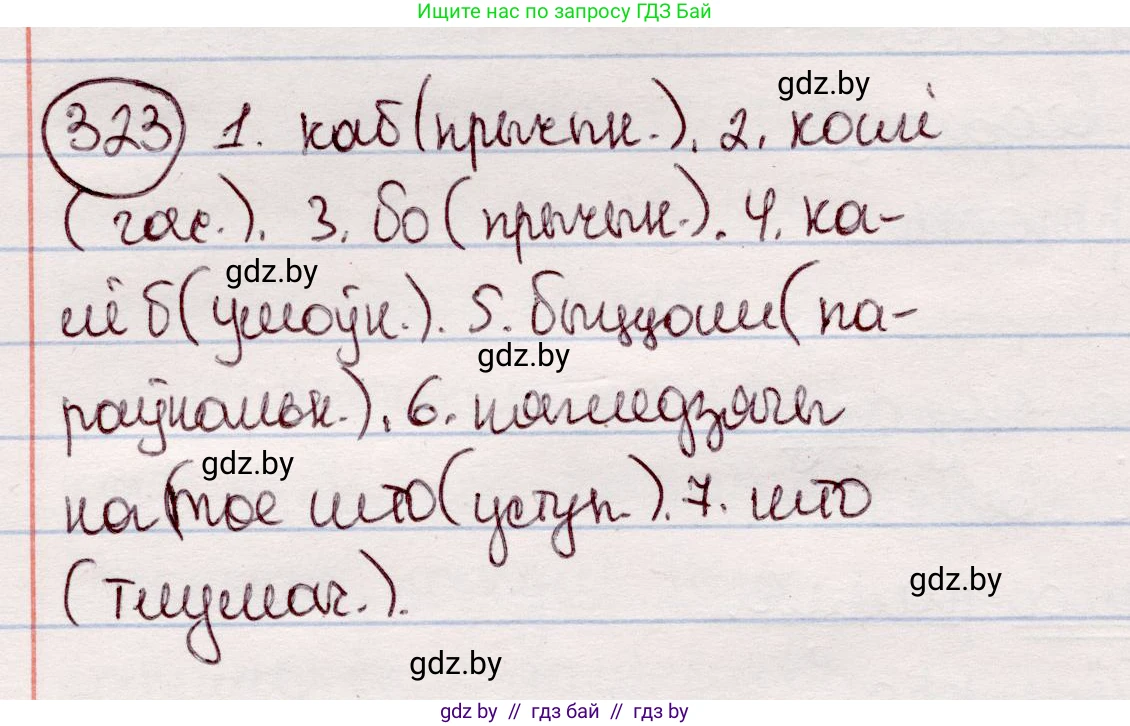 Ищите нас по запросу ГДЗ Бай
gdz.by
323 1. каб (прычын.). 2. калі
(час.). 3. бо (прычын.). 4. ка-
gdz.by
лі б (умоўн.). 5. быццам (па-
gdz.by
раўнальн.). 6. нягледзячы
gdz.by
на тое што (уступ.). 7. што
(тлумач.).
gdz.by
gdz.by
gdz by // гдз бай // гдз by